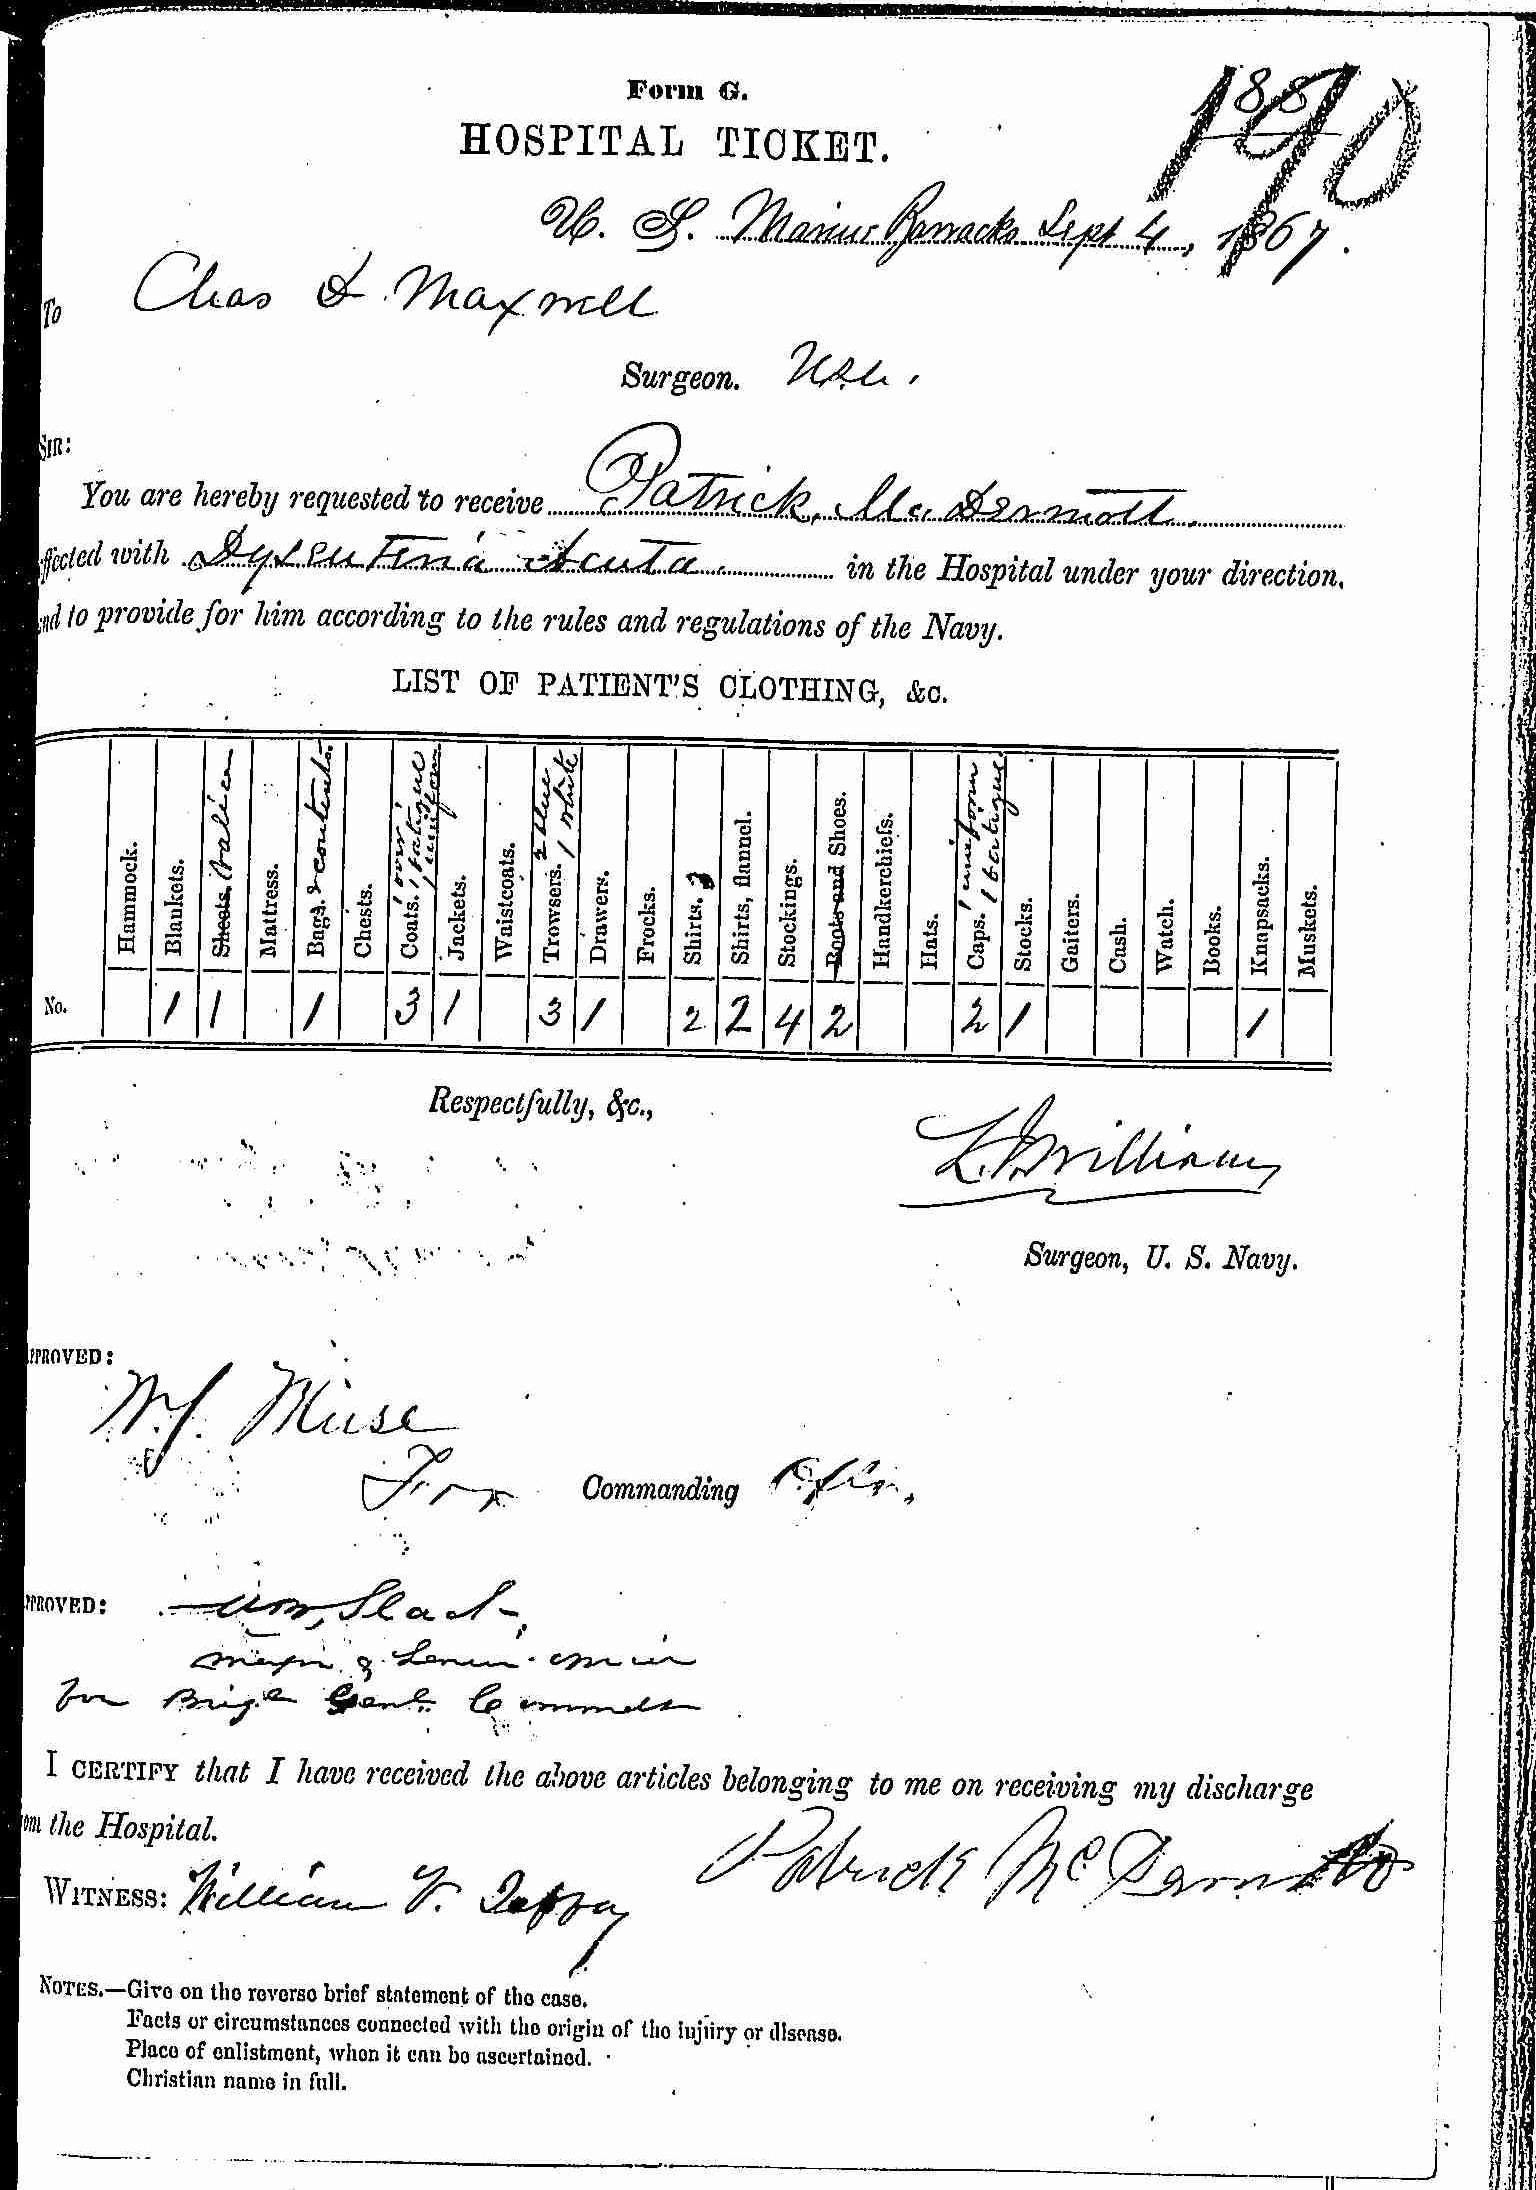 Form G.
188
190
HOSPITAL TICKET.
U. S. Marine Barracks Sept 4, 1867.
To Chas D. Maxwell
Surgeon. U.S.N.
SIR:
You are hereby requested to receive Patrick Mc Dermott.
ffected with Dysenteria Acuta. in the Hospital under your direction,
nd to provide for him according to the rules and regulations of the Navy.
LIST OF PATIENT'S CLOTHING, &c.
Hammock. Blankets. Sheets. Mattress. Bags. & contents. Chests. Coats. 1 over 1 fatigue 1 uniform Jackets. Waistcoats. Trowsers. 2 blue 1 white Drawers. Frocks. Shirts. Shirts, flannel. Stockings. Boots and Shoes. Handkerchiefs. Hats. Caps. 1 uniform 1 fatigue Stocks. Gaiters. Cash. Watch. Books. Knapsacks. Muskets.
No. 1 1 1 3 1 3 1 2 2 4 2 2 1 1
Respectfully, &c.,
L. J. Williams
Surgeon, U. S. Navy.
PPROVED:
W. J. Muse
For Commanding Offr.
PPROVED: Wm. Slack
Major & 
for Brigr Genl. Commdt
I CERTIFY that I have received the above articles belonging to me on receiving my discharge
om the Hospital.
Patrick McDermott
WITNESS: William V.
NOTES.—Give on the reverse brief statement of the case.
Facts or circumstances connected with the origin of the injury or disease.
Place of enlistment, when it can be ascertained.
Christian name in full.